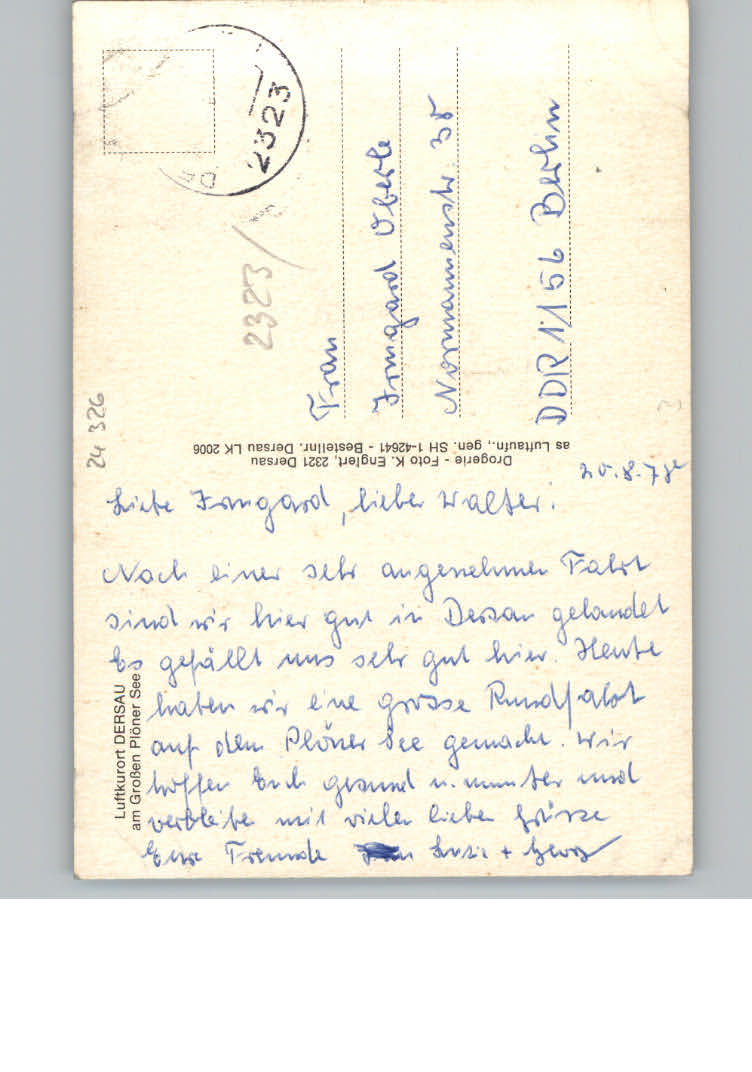 20.8.78
Liebe Irmgard, lieber Walter!
Nach einer sehr angenehmen Fahrt
sind wir hier gut in Dersau gelandet
Es gefällt uns sehr gut hier. Heute
haben wir eine grosse Rundfahrt
auf dem Plöner See gemacht. Wir
hoffen Euch gesund u. munter und
verbleibe mit vielen lieben Grüsse
Eure Freunde Luzie + Georg
Luftkurort DERSAU
am Großen Plöner See
Drogerie - Foto K. Englert, 2321 Dersau
as Luftaufn., gen. SH 1-42641 - Bestellnr. Dersau LK 2006
Frau
Irmgard Oberle
Normannenstr. 38
DDR 1156 Berlin
2323
2323/
24 326